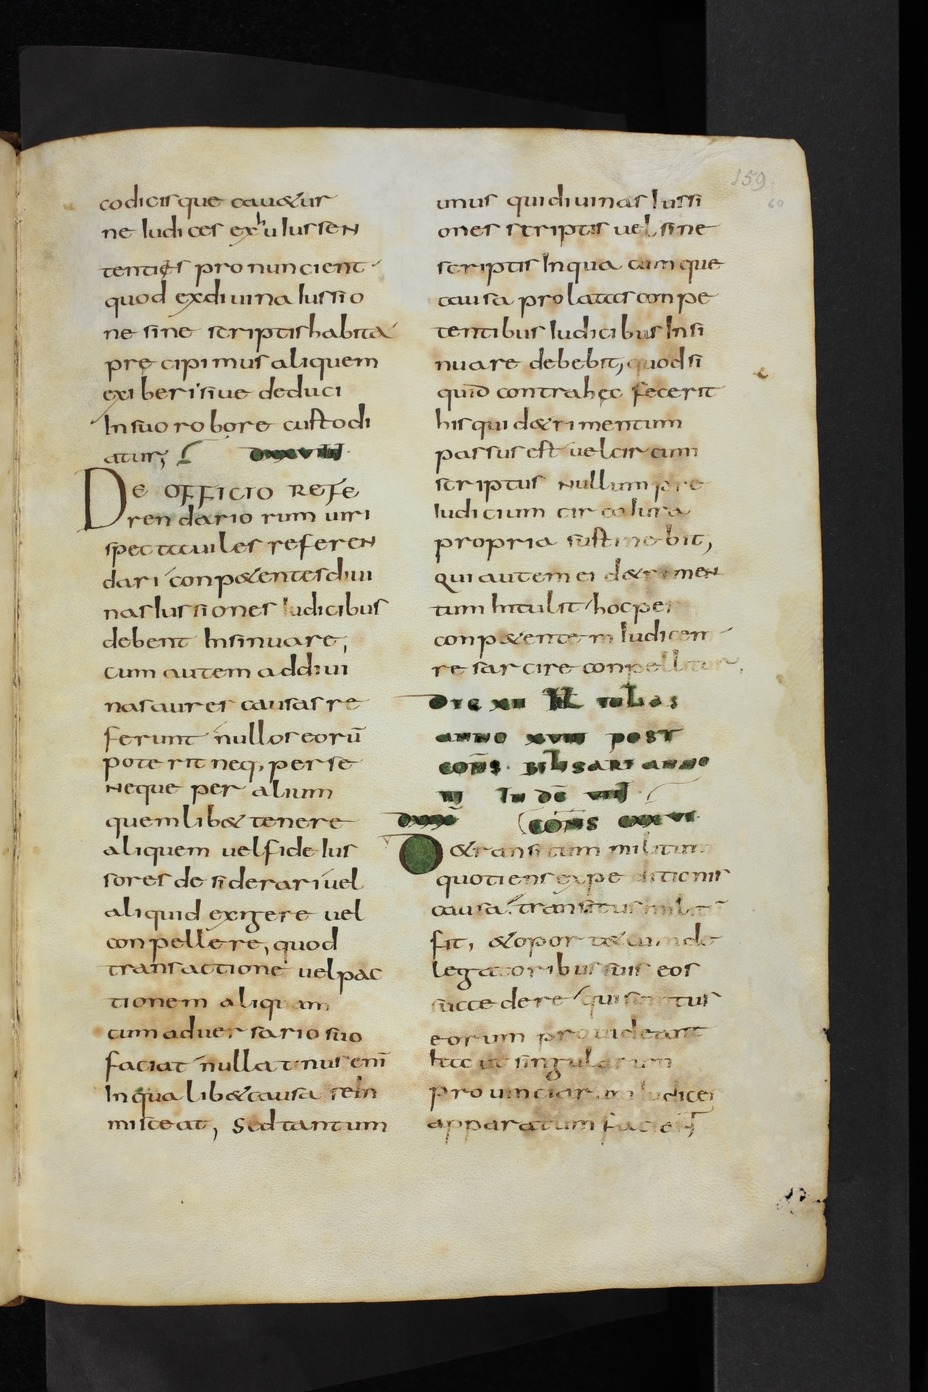 159
60
codicisque cau&ur
ne Iudices exhu Iussen
tentięs pronuncient
quod exdiuina Iussio
ne sine scriptishabita
prę cipimus aliquem
exiberi siue deduci
Insuo robore custodi
atur;
DE OFFICIO REFE
rendario rum uiri
spectauiles referen
dari conp&entesdiui
nasIussiones Iudicibus
debent Insinuare,
cum autem addiui
nasaures causas re
ferunt nullos eorū
poterit neq, per se
neque per alium
quemlib& tenere
aliquem uelfide Ius
sores desiderari uel
aliquid exigere uel
conpellere, quod
transactione uelpac
tionem aliquam
cumaduersariosuo
faciat nullatnus enī
Inqualib&causa seIn
misceat, Sedtantum
unus quidiuinas Iussi
ones scriptis uel sine
scriptis Inqua cumque
causa prolatas conpe
tentibus Iudicibus Insi
nuare debebit, quodsi
quid contrahęc fecerit
hisquid&rimentum
passusest uelcircum
scriptus nullumpre
Iudicium circaIura
propria sustinebit,
Qui autem ei d&rimen
tum Intulit hocper
conp&entem Iudicem
resarcire conpellitur,
DIC XII KL Iulias
anno XVIII post
CONS BILISARI anno
III IN DC VIIII
CONS CXXVI
D&ransitum militum
quotiens expeditionis
causa transitus militis
fit, &oport&cumde
legatoribus suis eos
succedere qui
eorum prouideant
hac ut singularum
prouinciarum Iudices
apparatum